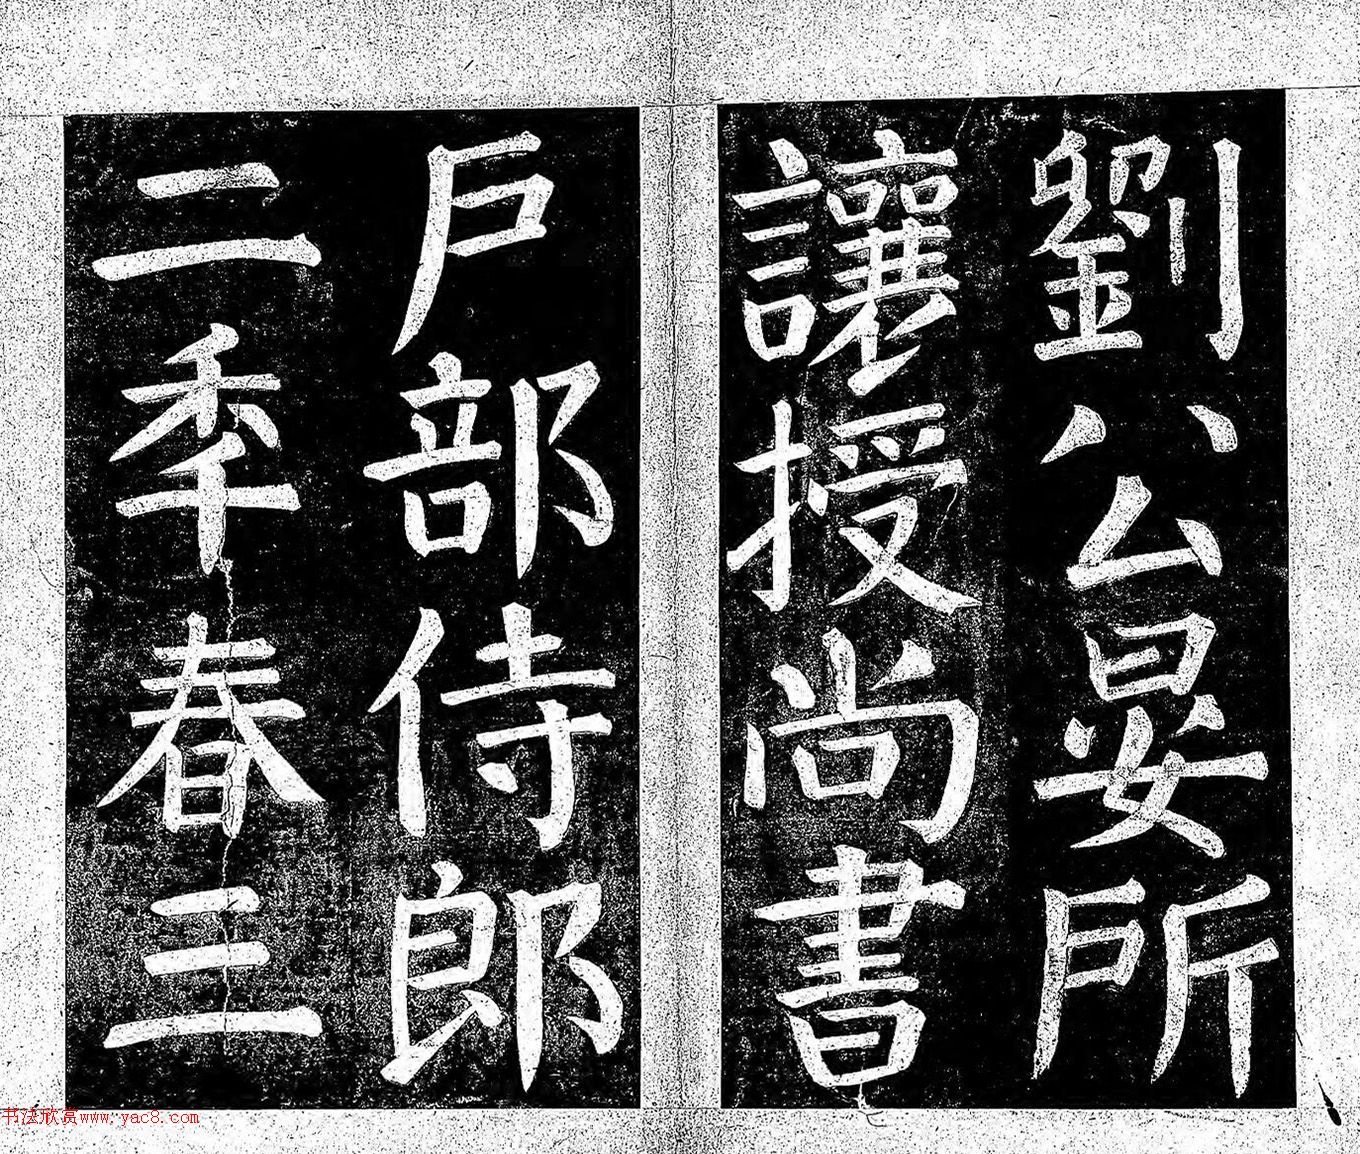 劉公晏所
讓授尚書
戶部侍郎
二季春三
书法欣赏www.yac8.com